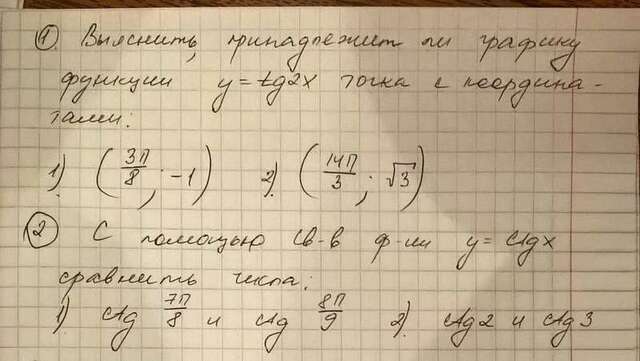 ① Выяснить, принадлежит ли графику
функции y = tg2x точка с координа-
тами:
1) (3π/8; -1) 2) (14π/3; √3)
② С помощью св-в ф-ии y = ctgx
сравнить числа:
1) ctg 7π/8 и ctg 8π/9 2) ctg2 и ctg3